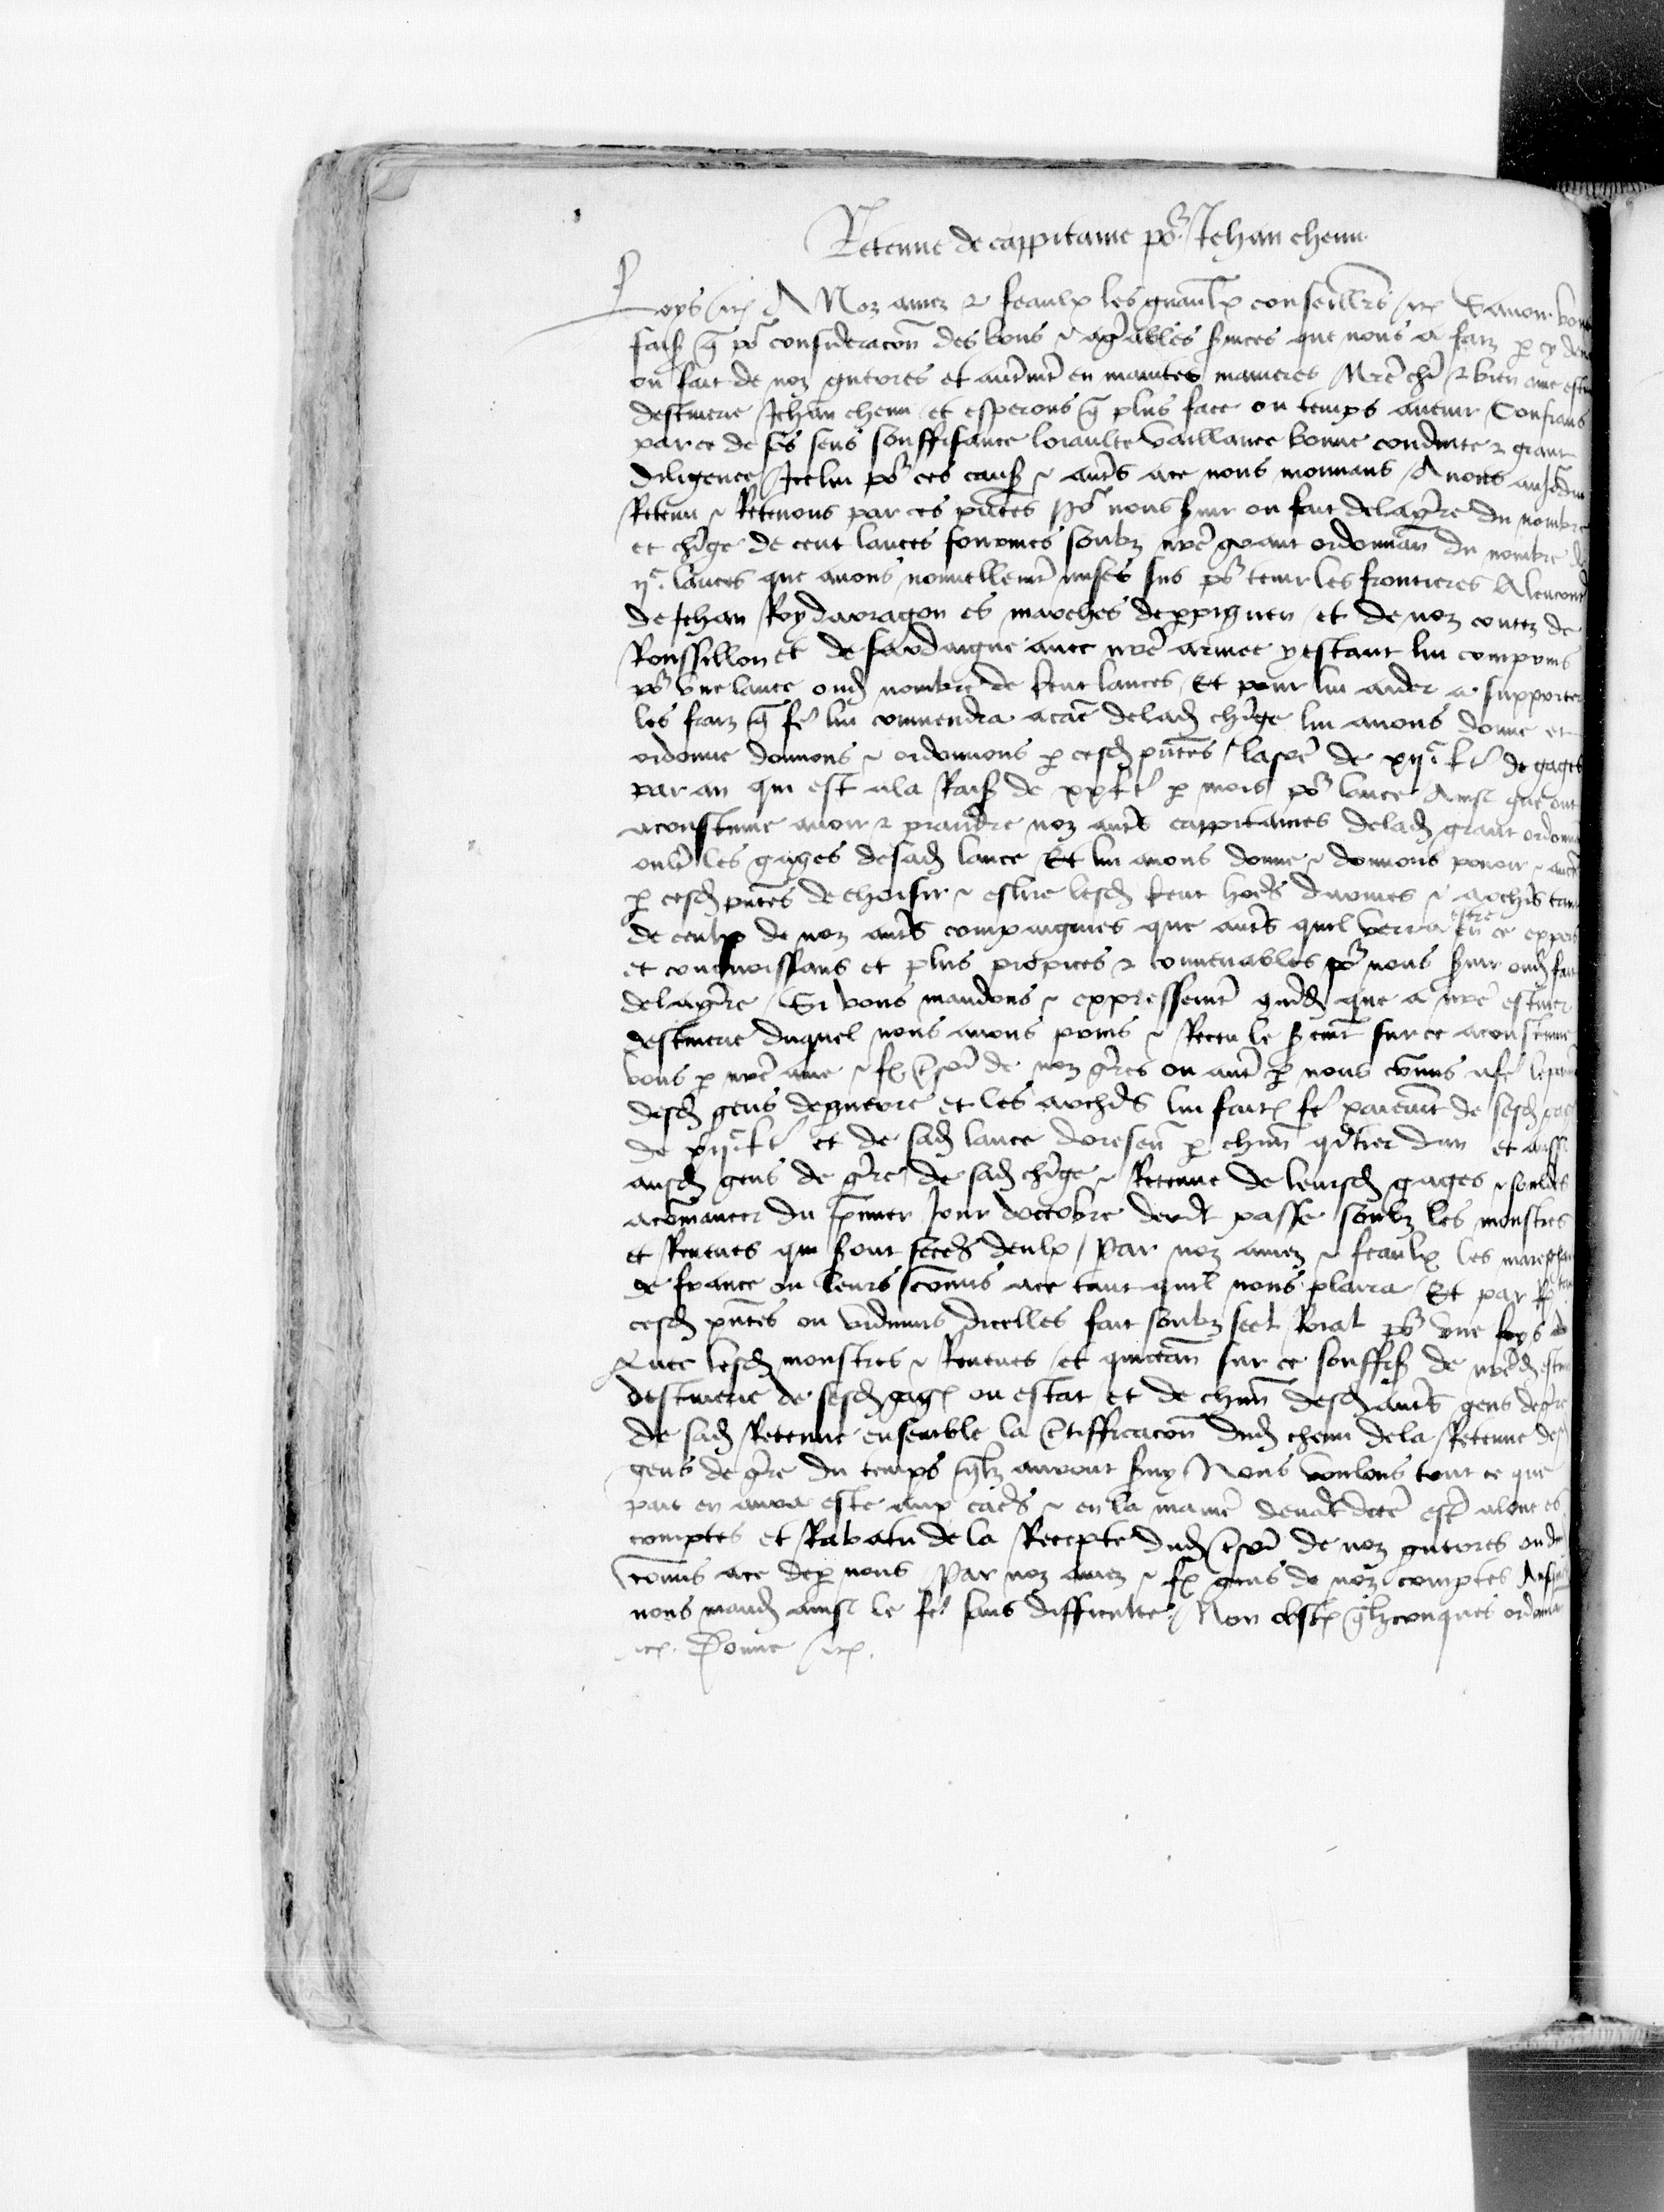 Retenue de cappitaine po.r Jehan chenu
Loys etc A Noz amez & feaulx les gnaulx conseill.rs etc Savoir vous
fais.s q po.r consideracon des bons & agreables s.vices que nous a faiz p cy dev
ou fait de noz guerres et autrem.t en maintes manieres N.re ch.r & bien ame escui
descuierie Jehan chenu et esperons q plus face ou temps avenir Confians
par ce de ses sens souffisance loiaulte vaillance bonne conduite & grant
diligence Icelui po.r ces caus.s & aut.s ace nous mouvans Avons aujourdui
Retenu & Retenons par ces p.ntes po.r nous s.vir ou fait de la g.rre du nombre
et ch.ge de cent lances fournies soubz n.re grant ordonnan du nombre de
ij.c lances que avons nouvellem.t mises sus po.r tenir les frontieres A lencont.
de Jehan Roy darragon es marches de ppignen et de noz contez de
Roussillon et de sardaigne avec n.re armee y estant lui comprins
po.r une lance oud nombre de cent lances Et pour lui aider a supporter
les fraiz q f.e lui convendra acaue de lad ch.ge lui avons donne et
ordonne donnons & ordonnons p cesd p.ntes la so.e de xij.c l.t de gages
par an qui est ala Rais. de xx l.t p mois po.r lance Ainsi que ont
acoustume avoir & prandre noz aut.s cappitaines de lad grant ordonn
oult.e les gages de sad lance Et lui avons donne & donnons povoir & auct.e
p cesd p.ntes de choisir & eslire lesd cent ho.es darmes & archi.s tant
de ceulx de noz aut.s compaignies que aut.s quil verra estre en ce expers
et congnoissans et plus propices & convenables po.r nous s.vir oud fait
de la g.rre Si vous mandons & expressem.t que a n.re escuier
descuierie duquel nous avons prins & Receu le s.em.t sur ce acoustume
vous p n.re ame & f. t.sor.r de noz g.rres ou aut.e p nous co.mis a f.e le paiem.t
desd gens de guerre et les archi.s lui fait. f.e paiem.t de sesd gag.
de xij.c l.t et de sad lance doresen. p ch.un q.rtier dan et aussi
ausd gens de g.rre de sad ch.ge & Retenue de leursd gages & souldes
a co.mancer du p.mier Jour doctobre dernt passe soubz les monstres
et Reveues qui s.ont fec.es deulx Par noz amez & feaulx les mareschaux
de france ou leurs co.mis ace tant quil nous plaira Et par Rap.tant
cesd p.ntes ou vidimus dicelles fait soubz scel Roial po.r une foys
Avec lesd monstres & Reveues et quictan sur ce souffis.s de n.red escui
descuierie de sesd gag. ou estat et de ch.un desd aut.s gens de g.rre
de sad Retenue ensemble la c.tifficacon dud chenu de la Retenue desd
gens de g.rre du temps qlz auront s.vy Nous voulons tout ce que
paie en aura este aux caus.s & en la manie. devat d.cte est.e aloue es
comptes et Rabatu de la Recepte dud t.sor.r de noz guerres ou de
co.mis ace de p nous Par noz amez & f. gens de noz comptes Ausqlz
nous mand ainsi le f.e sans difficulte Non obst. qlzconques ordonna
etc. Donne etc.